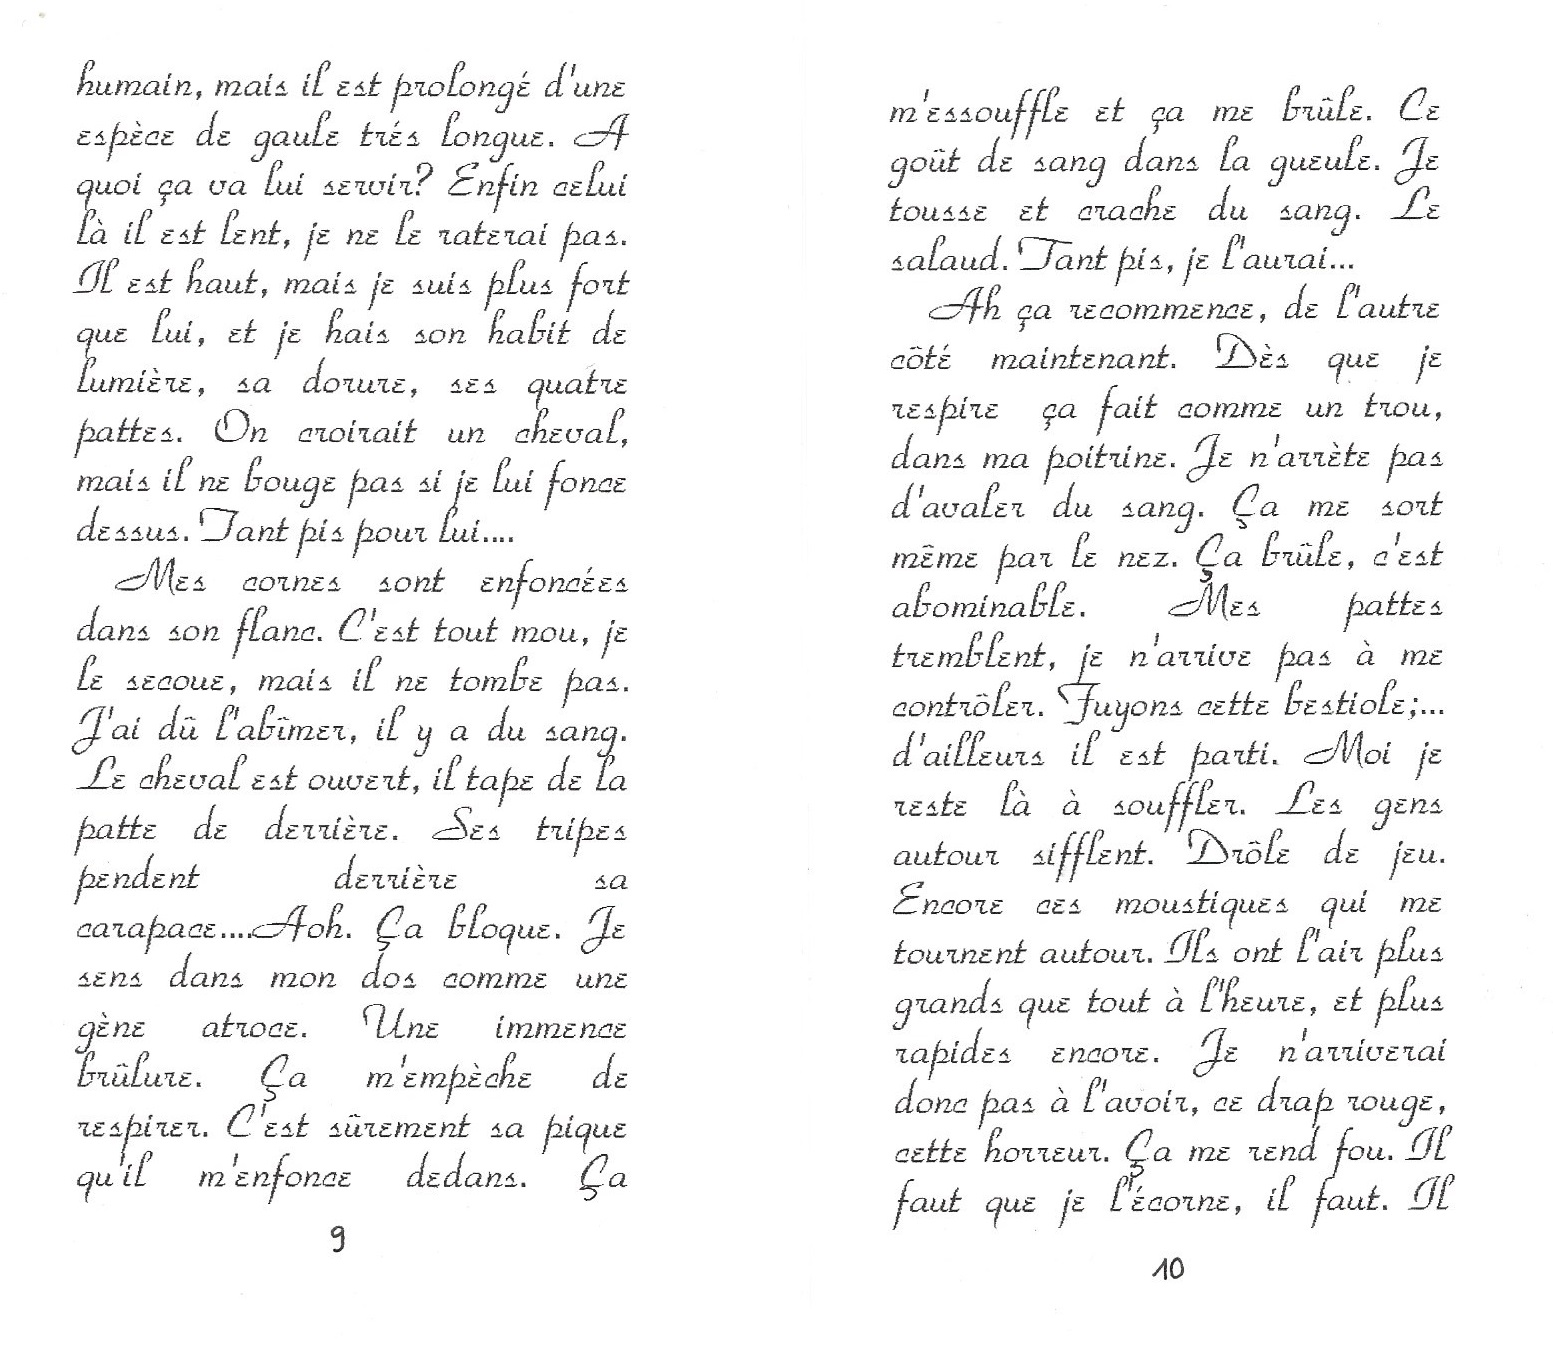 humain, mais il est prolongé d'une
espèce de gaule trés longue. A
quoi ça va lui servir? Enfin celui
là il est lent, je ne le raterai pas.
Il est haut, mais je suis plus fort
que lui, et je hais son habit de
lumière, sa dorure, ses quatre
pattes. On croirait un cheval,
mais il ne bouge pas si je lui fonce
dessus. Tant pis pour lui....
Mes cornes sont enfoncées
dans son flanc. C'est tout mou, je
le secoue, mais il ne tombe pas.
J'ai dû l'abîmer, il y a du sang.
Le cheval est ouvert, il tape de la
patte de derrière. Ses tripes
pendent derrière sa
carapace....Aoh. Ça bloque. Je
sens dans mon dos comme une
gène atroce. Une immence
brûlure. Ça m'empèche de
respirer. C'est sûrement sa pique
qu'il m'enfonce dedans. Ça
9
m'essouffle et ça me brûle. Ce
goût de sang dans la gueule. Je
tousse et crache du sang. Le
salaud. Tant pis, je l'aurai...
Ah ça recommence, de l'autre
côté maintenant. Dès que je
respire ça fait comme un trou,
dans ma poitrine. Je n'arrète pas
d'avaler du sang. Ça me sort
même par le nez. Ça brûle, c'est
abominable. Mes pattes
tremblent, je n'arrive pas à me
contrôler. Fuyons cette bestiole;...
d'ailleurs il est parti. Moi je
reste là à souffler. Les gens
autour sifflent. Drôle de jeu.
Encore ces moustiques qui me
tournent autour. Ils ont l'air plus
grands que tout à l'heure, et plus
rapides encore. Je n'arriverai
donc pas à l'avoir, ce drap rouge,
cette horreur. Ça me rend fou. Il
faut que je l'écorne, il faut. Il
10